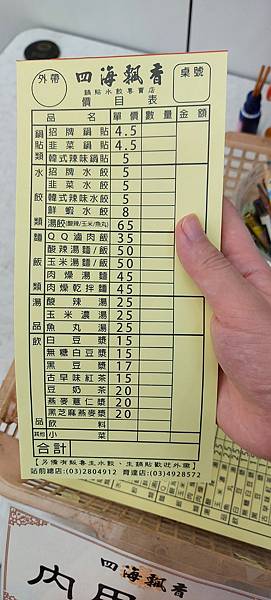 外帶
四海飄香
鍋貼水餃專賣店
價目表
桌號
品名 單價 數量 金額
鍋貼類
招牌鍋貼 4.5
韭菜鍋貼 4.5
韓式辣味鍋貼 5
水餃類
招牌水餃 5
韭菜水餃 5
韓式辣味水餃 5
鮮蝦水餃 8
湯餃(酸辣/玉米/魚丸) 65
麵飯類
QQ滷肉飯 35
酸辣湯麵/飯 50
玉米湯麵/飯 50
肉燥湯麵 45
肉燥乾拌麵 45
湯品
酸辣湯 25
玉米濃湯 25
魚丸湯 25
飲品
白豆漿 15
無糖白豆漿 15
黑豆漿 17
古早味紅茶 15
豆奶茶 20
燕麥薏仁漿 20
黑芝麻燕麥漿 20
飲料
其他 小菜
合計
【另備有販售生水餃、生鍋貼歡迎外帶】
站前總店:(03)2804912 育達店:(03)4928572
四海飄香
內用